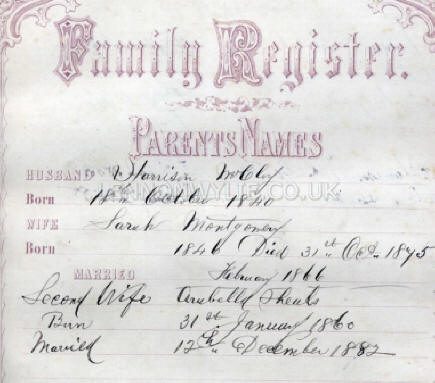 Family Register.
PARENTS NAMES
HUSBAND Harrison
Born October 1840
WIFE Sarah Montgomery
Born 1846 Died 31st Oct. 1875
MARRIED February 1866
Second Wife Arabella Sheats
Born 31st January 1860
Married 12th December 1882